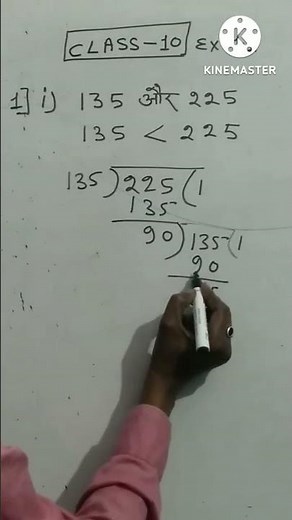 CLASS-10 Ex
KINEMASTER
1] i) 135 और 225
135 < 225
135) 225 (1
135
90) 135 (1
90
5